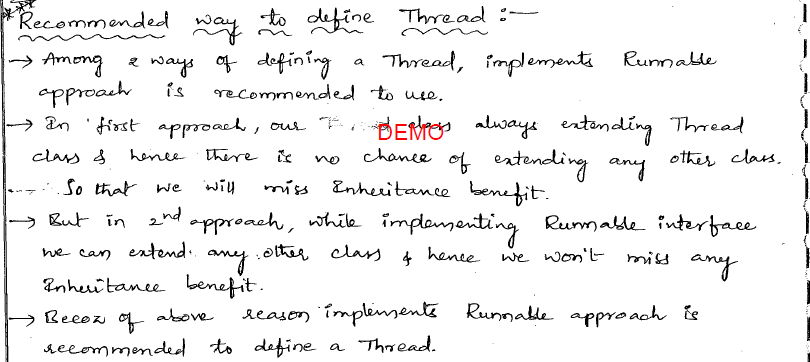 *** Recommended way to define Thread :—
→ Among 2 ways of defining a Thread, implements Runnable
approach is recommended to use.
→ In first approach, our class always extending Thread
DEMO
class & hence there is no chance of extending any other class.
So that we will miss Inheritance benefit.
→ But in 2nd approach, while implementing Runnable interface
we can extend any other class & hence we won't miss any
Inheritance benefit.
→ Becoz of above reason implements Runnable approach is
recommended to define a Thread.